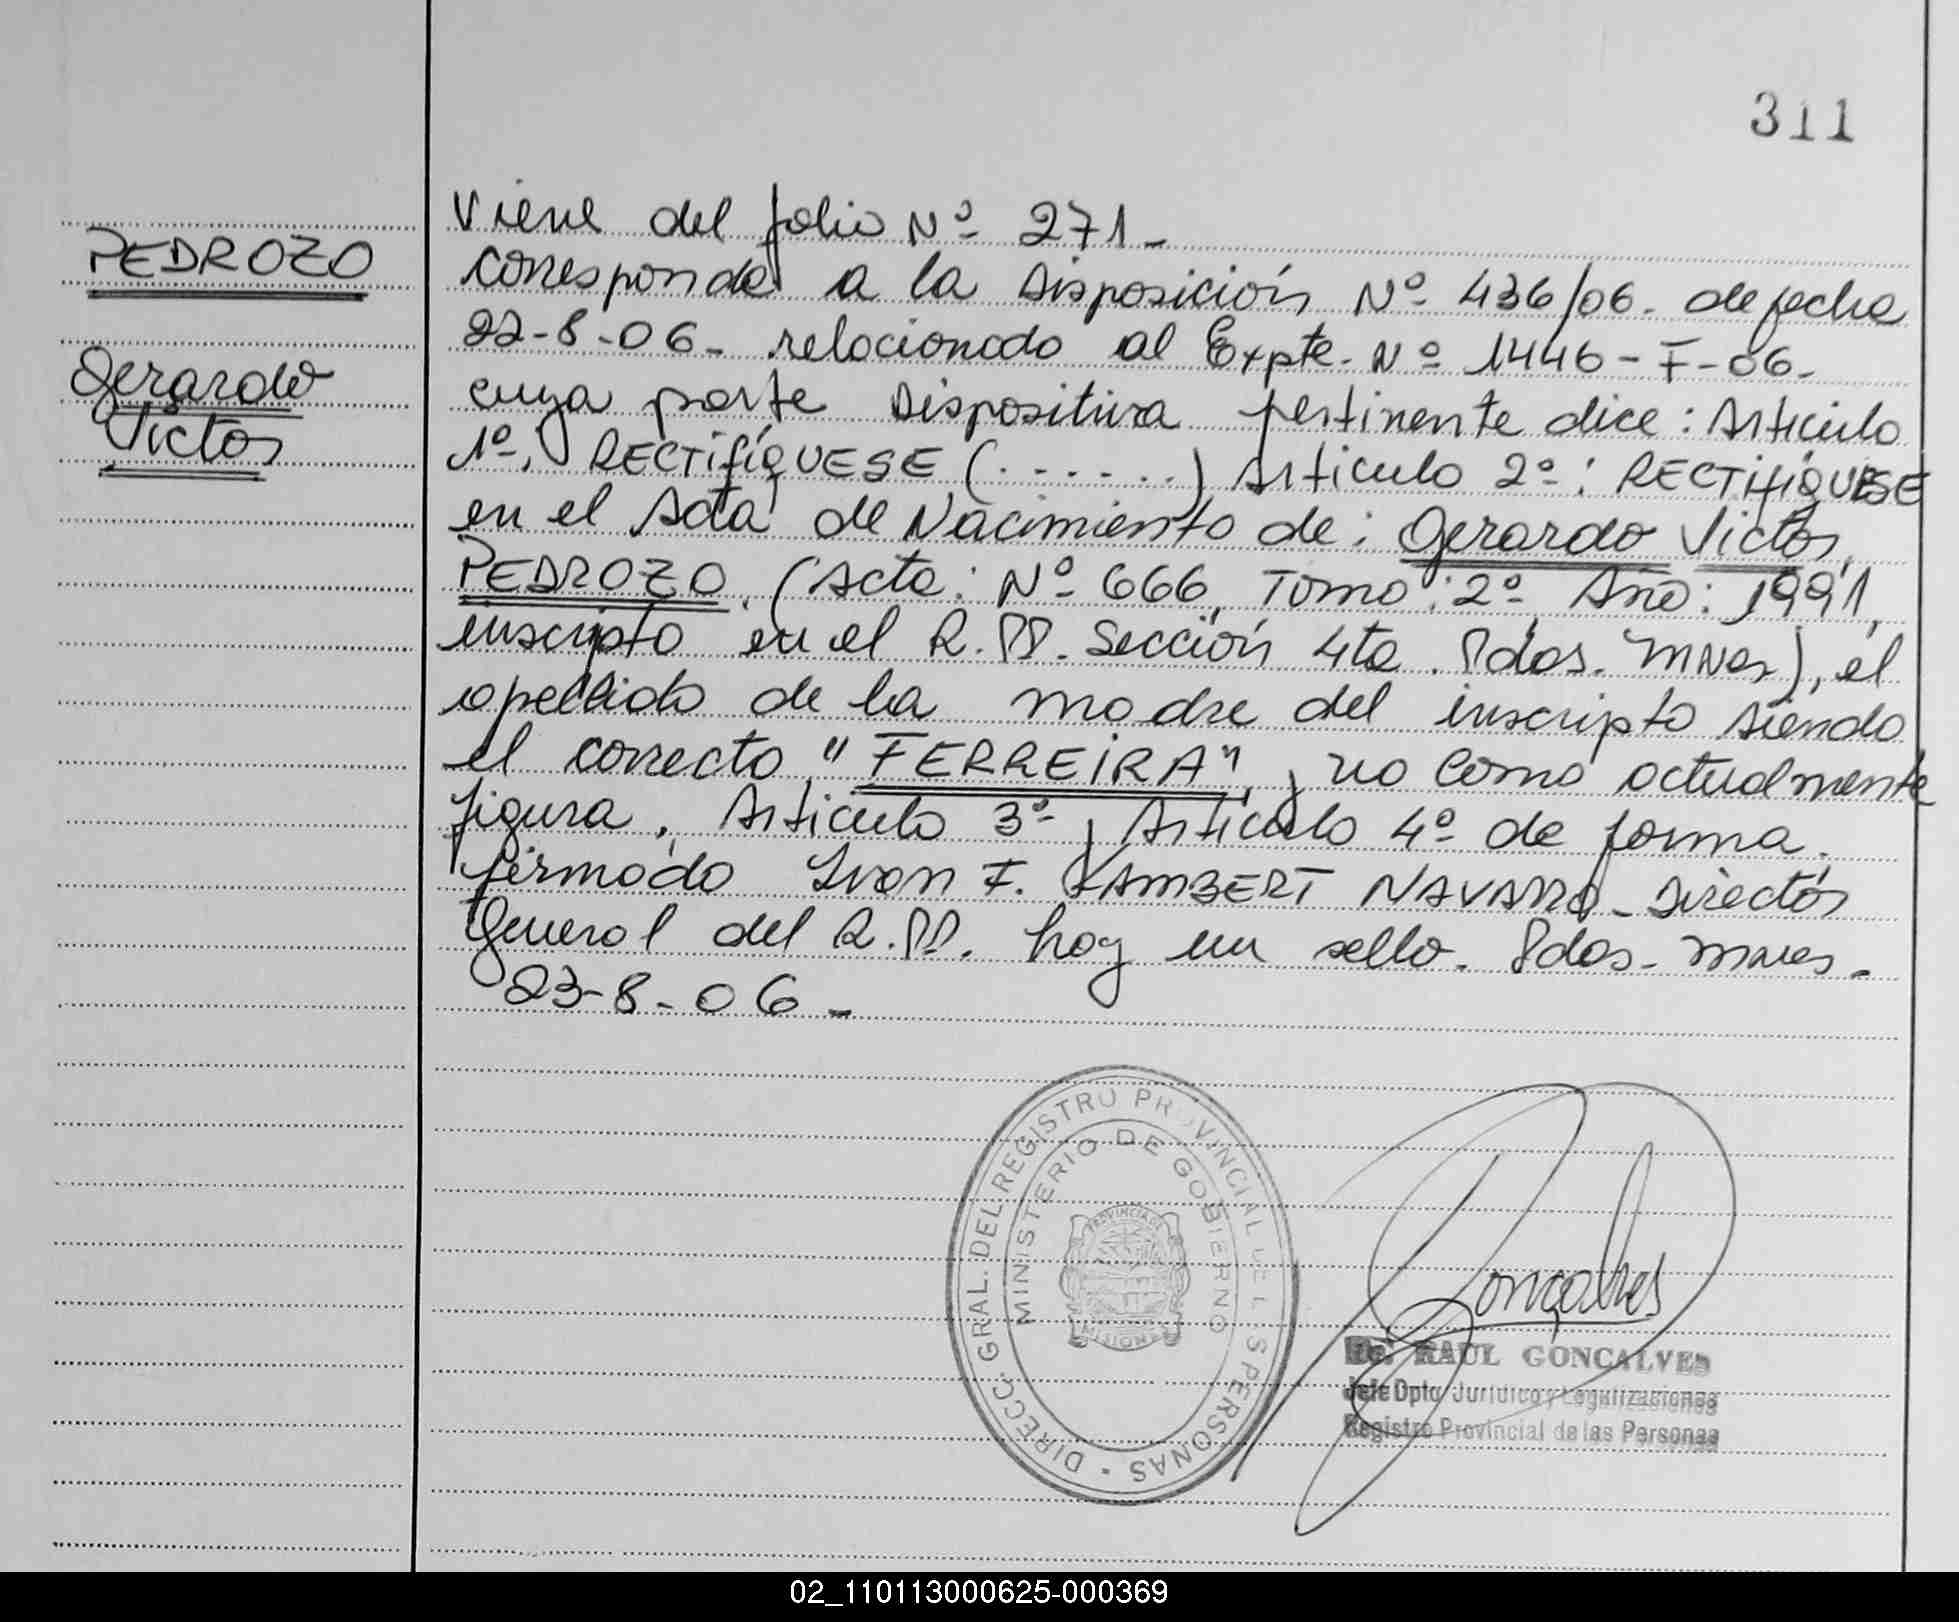 311
PEDROZO
Gerardo
Victor
Viene del folio Nº 271_
corresponde a la Disposición Nº 436/06. de fecha
22-8-06_ relacionado al Expte. Nº 1446-F-06_
cuya parte Dispositiva pertinente dice: Artículo
1º, RECTIFÍQUESE (......) Artículo 2º: RECTIFÍQUESE
en el Acta de Nacimiento de: Gerardo Victor
PEDROZO, (Acta: Nº 666, Tomo: 2º Año: 1991,
inscripto en el R.PP. Sección 4ta. Pdas. Mnes), el
apellido de la madre del inscripto siendo
el correcto "FERREIRA", no como actualmente
figura. Artículo 3º, Artículo 4º de forma.
firmado Ivan F. KAMBERT NAVARRO_ Director
General del R.PP. hay un sello. Pdas. Mnes.
23-8-06_
DIRECC. GRAL. DEL REGISTRO PROVINCIAL DE LAS PERSONAS
MINISTERIO DE GOBIERNO
PROVINCIA DE
MISIONES
Gonçalves
Dr. RAUL GONCALVES
Jefe Dpto Jurídico y Legalizaciones
Registro Provincial de las Personas
02_110113000625-000369